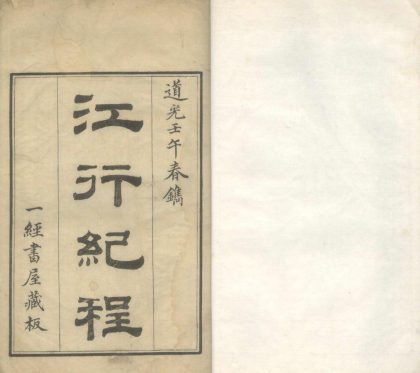 道光壬午春鐫
江行紀程
一經書屋藏板